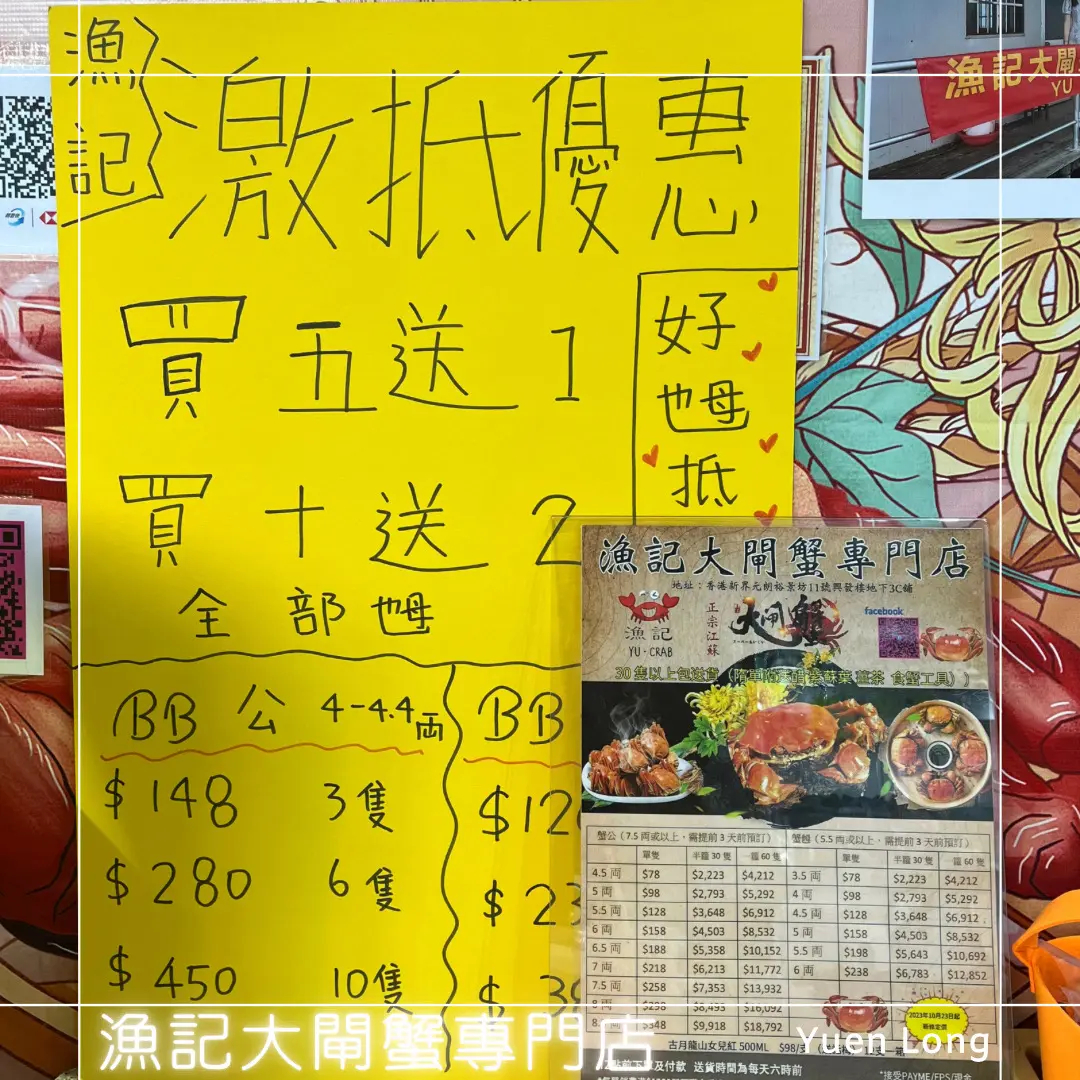 漁記
激抵優惠
買五送1
買十送2
全部乸
好乸抵
BB 公 4-4.4両
$148 3隻
$280 6隻
$450 10隻
BB
漁記大閘
YU
漁記大閘蟹專門店
地址：香港新界元朗裕景坊11號興發樓地下3C舖
漁記
YU·CRAB
正宗江蘇
大閘蟹
facebook
蟹公（7.5 両或以上，需提前 3 天前預訂） 蟹乸（5.5 両或以上，需提前 3 天前預訂）
單隻 半籮 30 隻 一籮 60 隻 單隻 半籮 30 隻 一籮 60 隻
4.5 両 $78 $2,223 $4,212 3.5 両 $78 $2,223 $4,212
5 両 $98 $2,793 $5,292 4 両 $98 $2,793 $5,292
5.5 両 $128 $3,648 $6,912 4.5 両 $128 $3,648 $6,912
6 両 $158 $4,503 $8,532 5 両 $158 $4,503 $8,532
6.5 両 $188 $5,358 $10,152 5.5 両 $198 $5,643 $10,692
7 両 $218 $6,213 $11,772 6 両 $238 $6,783 $12,852
7.5 両 $258 $7,353 $13,932
8 両 $298 $8,493 $16,092
$348 $9,918 $18,792
2023年10月23日起
古月龍山女兒紅 500ML $98/支
及付款 送貨時間為每天六時前
*接受PAYME/FPS/現金
漁記大閘蟹專門店
Yuen Long